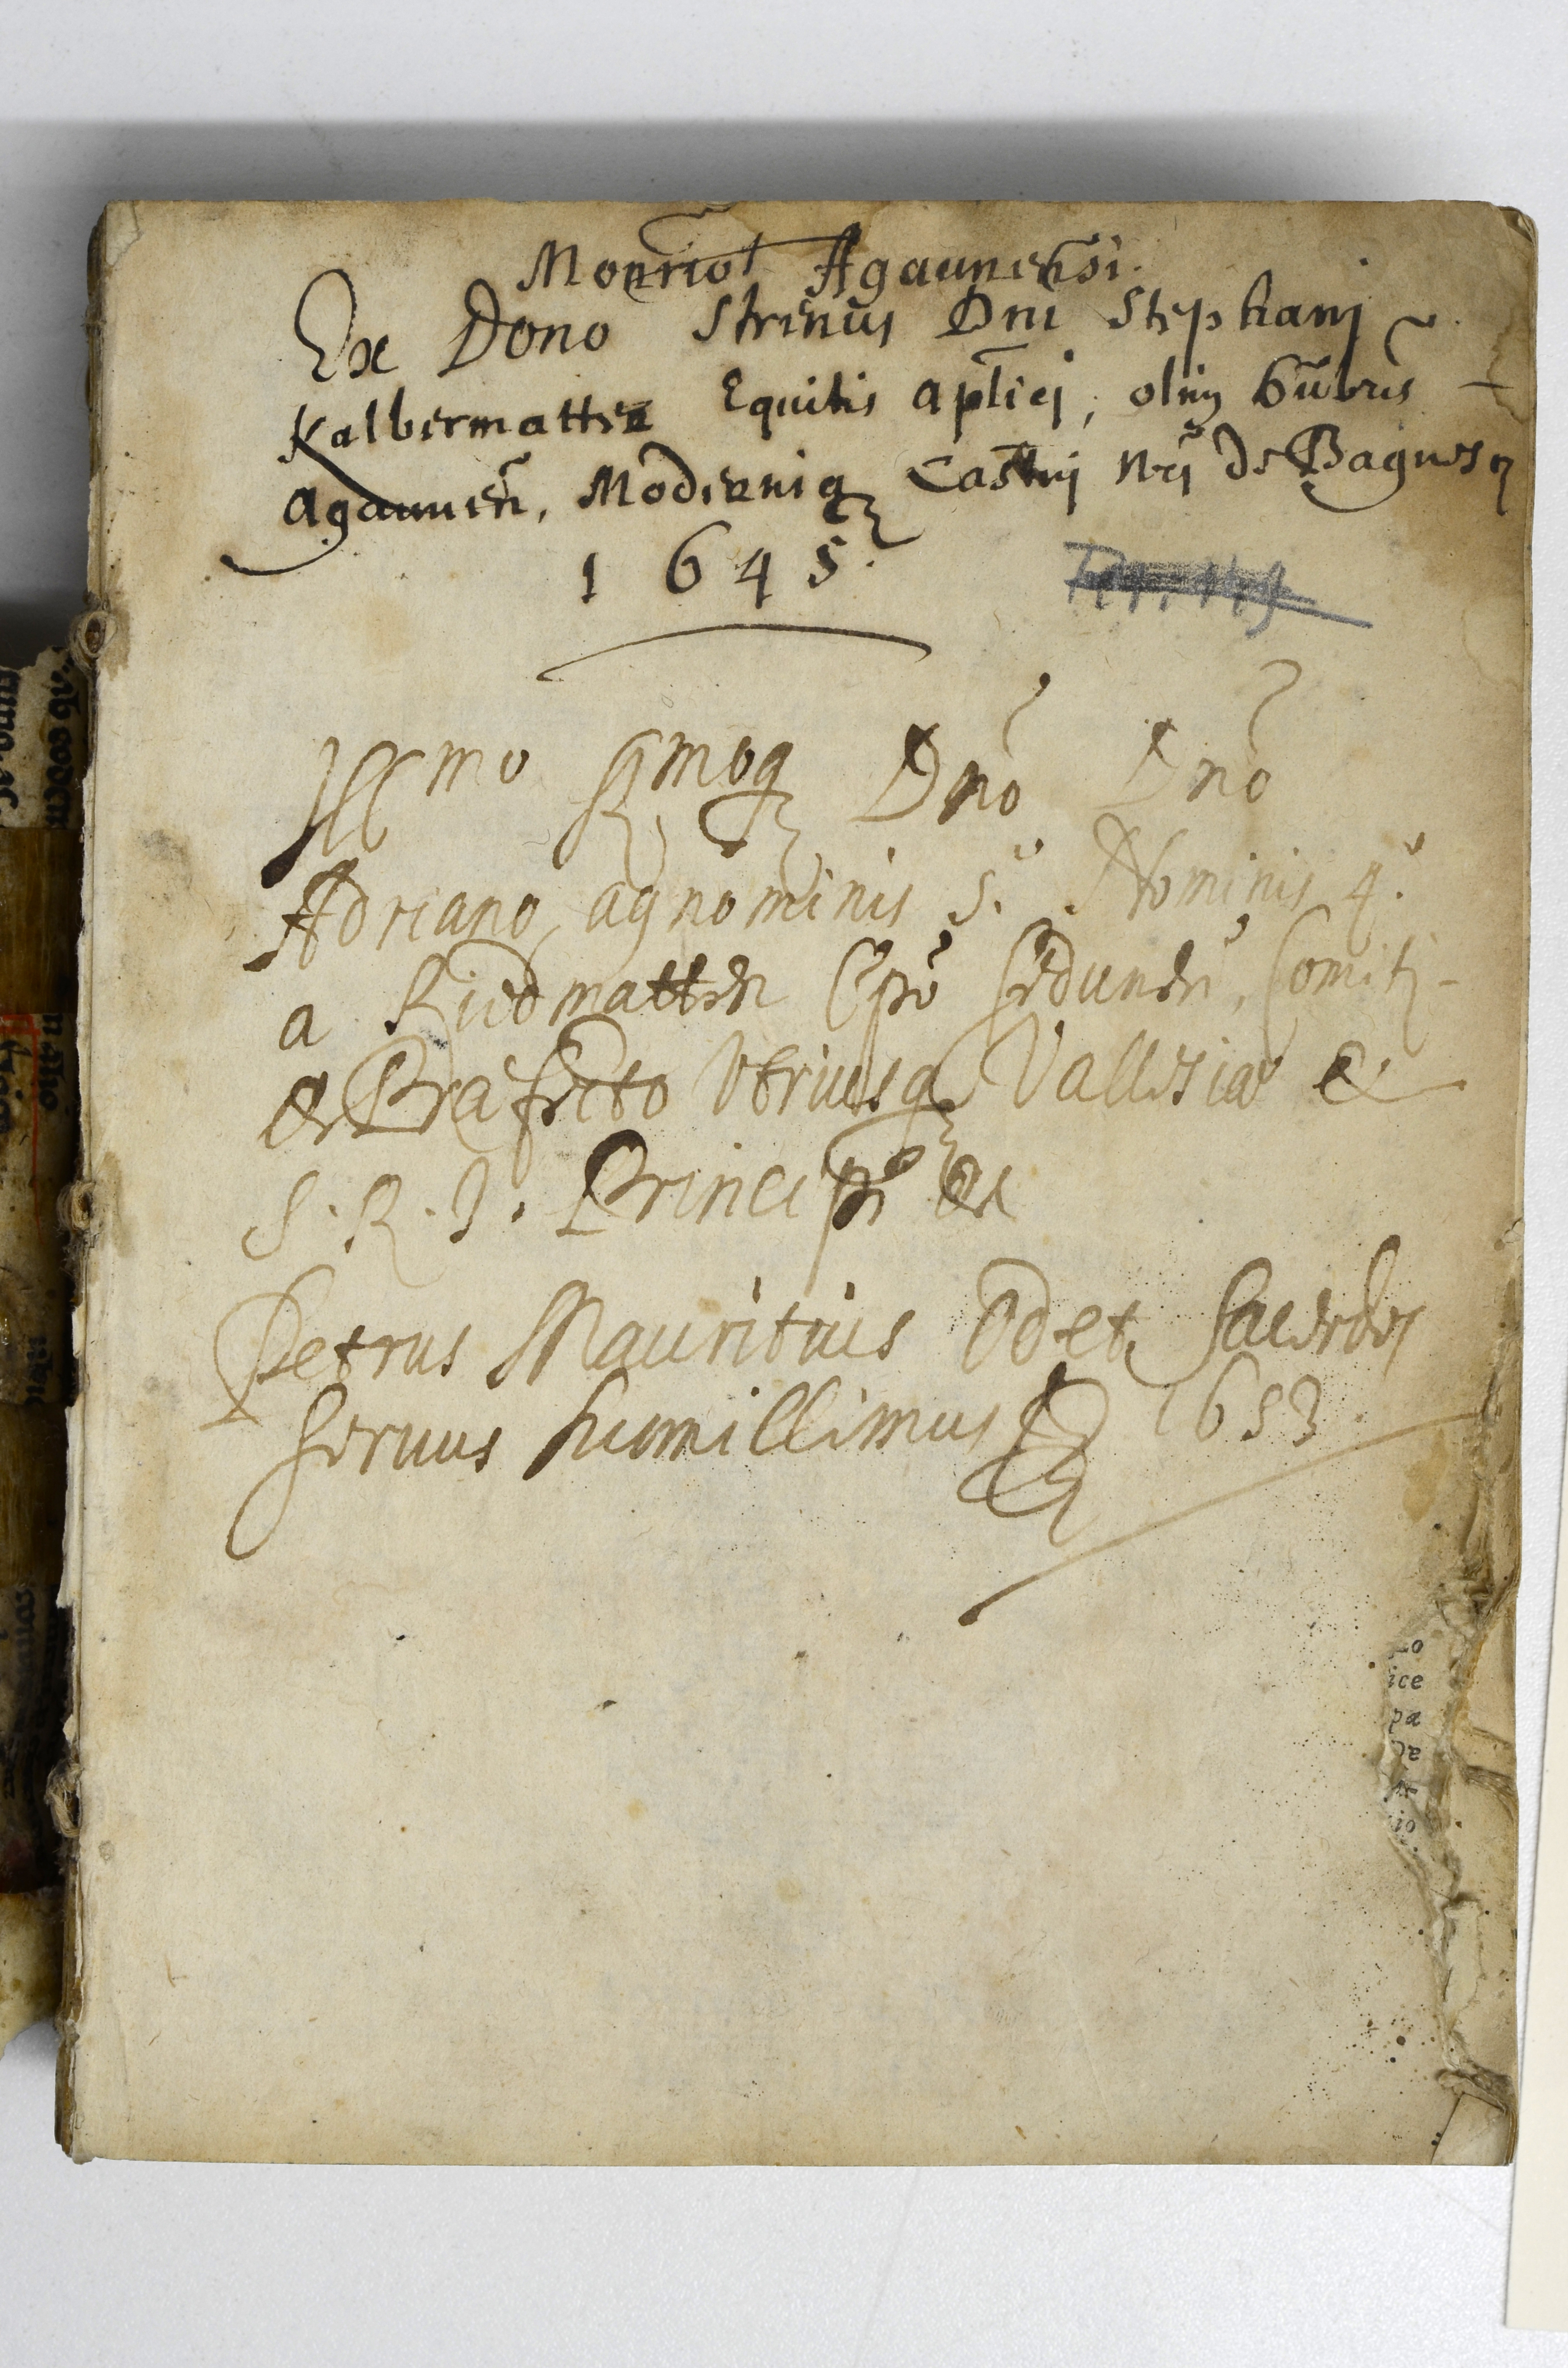 Monrio! Agaunensi.
Ex Dono Strenui Dni Stephani
Kalbermatter Equitis aplici, olim Gubris
Agaunen, Moderniq Castni nri de Bagnes
1645.
Illmo Rmoq Dno Dno
Adriano, agnominis 5.° Nominis 4.°
a Riedmatten Epo Sedunen, Comiti
& Præfecto Utriusq Vallesiæ &
S. R. I. Principi &c
Petrus Mauritius Odet Sacerdos
servus humillimus 1653
ice
pa
io